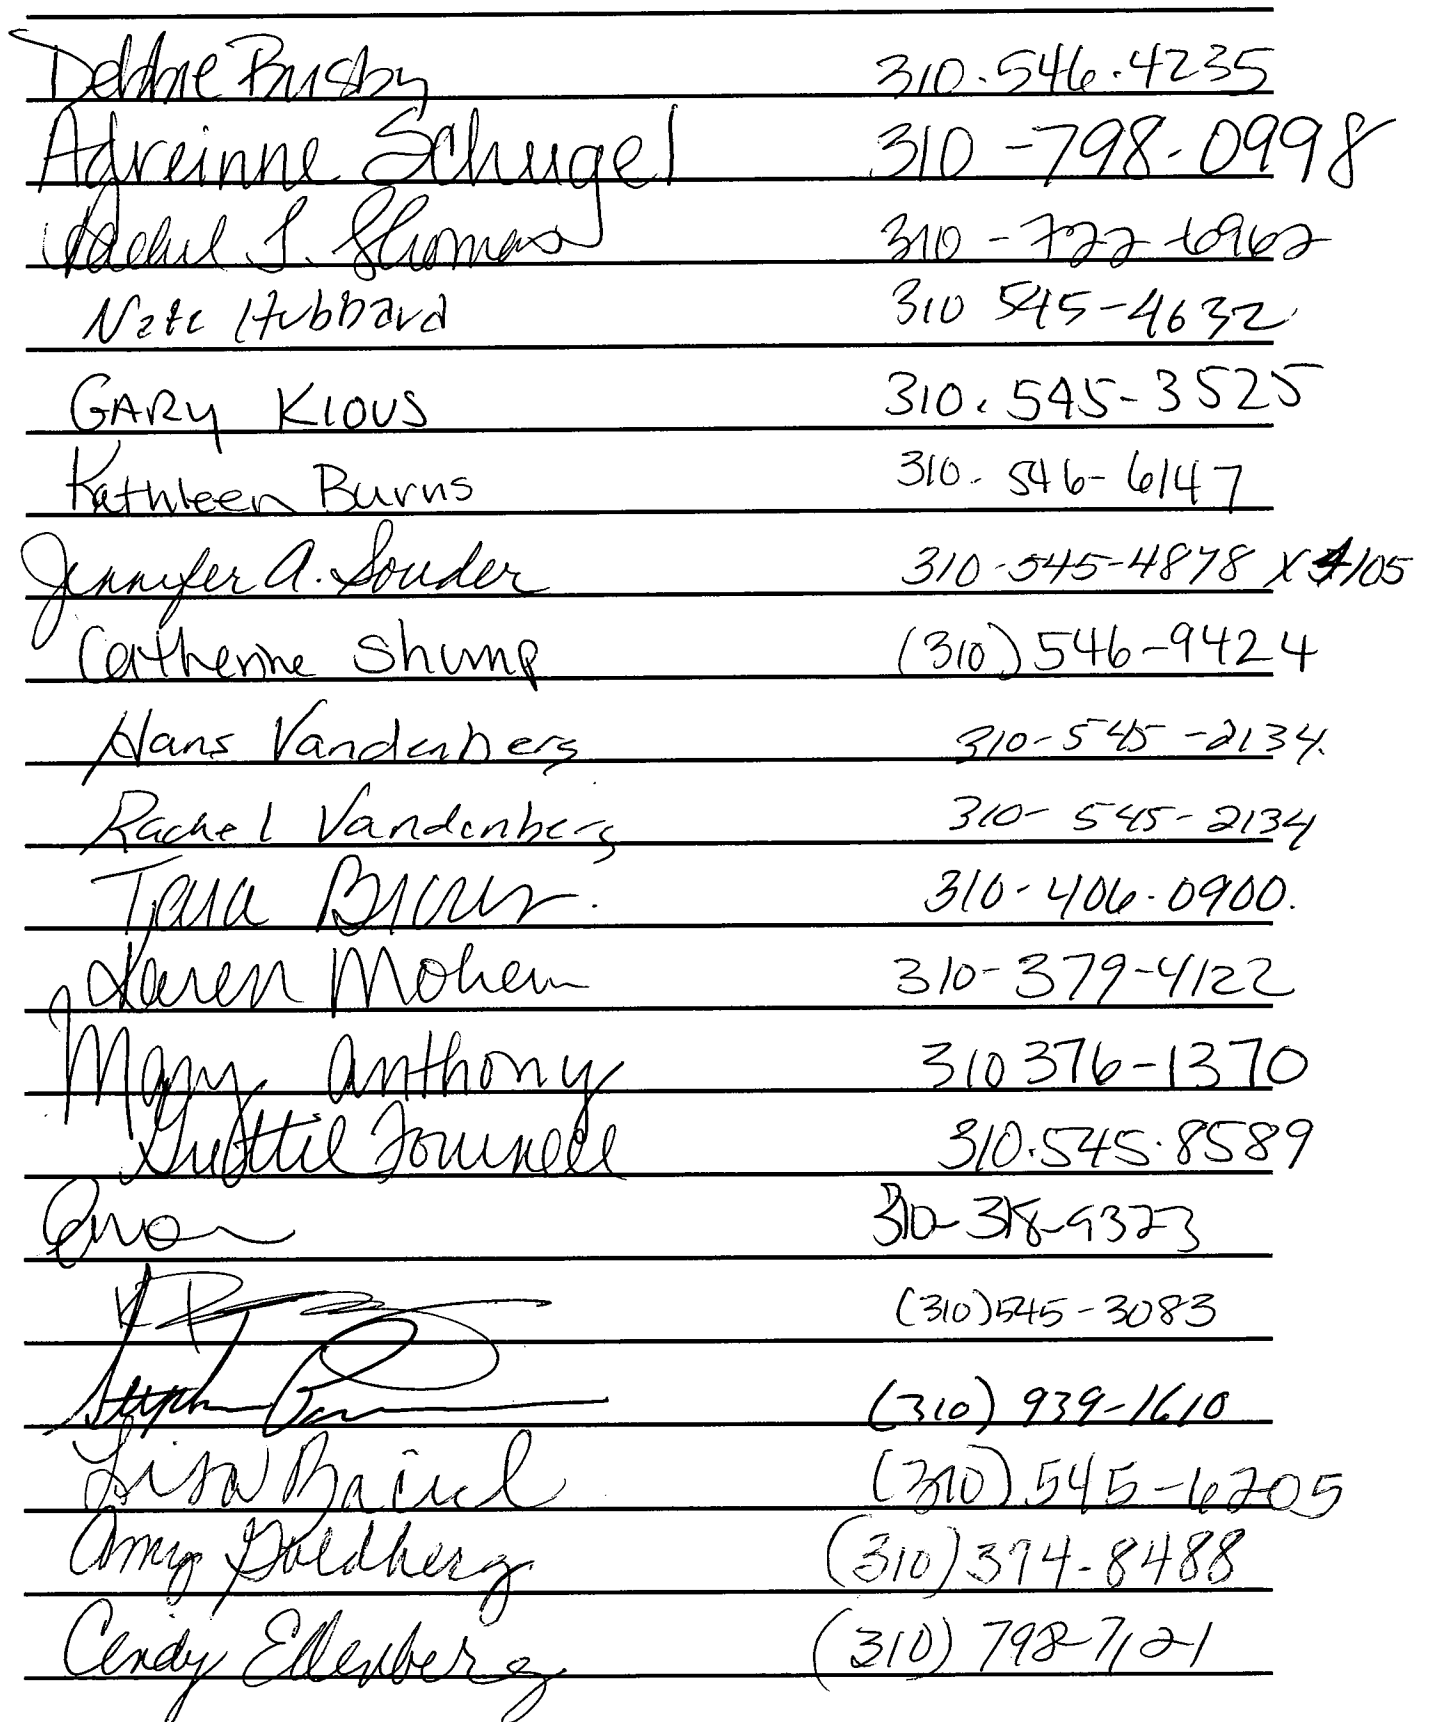 Debbie Busby 310.546.4235
Adreinne Schugel 310-798-0998
Rachel J. Thomas 310-722-6962
Nate Hubbard 310 545-4632
GARY KIOUS 310.545-3525
Kathleen Burns 310.546-6147
Jennifer A. Souder 310-545-4878 X 4105
Catherine Shump (310) 546-9424
Hans Vandenberg 310-545-2134.
Rachel Vandenberg 310-545-2134
Tara 310-406-0900.
Karen 310-379-4122
Mary Anthony 310 376-1370
310.545.8589
310-318-9323
(310) 545-3083
(310) 939-1610
Lisa Baird (310) 545-6205
Amy Goldberg (310) 374-8488
Cindy Ellenberg (310) 798-7121